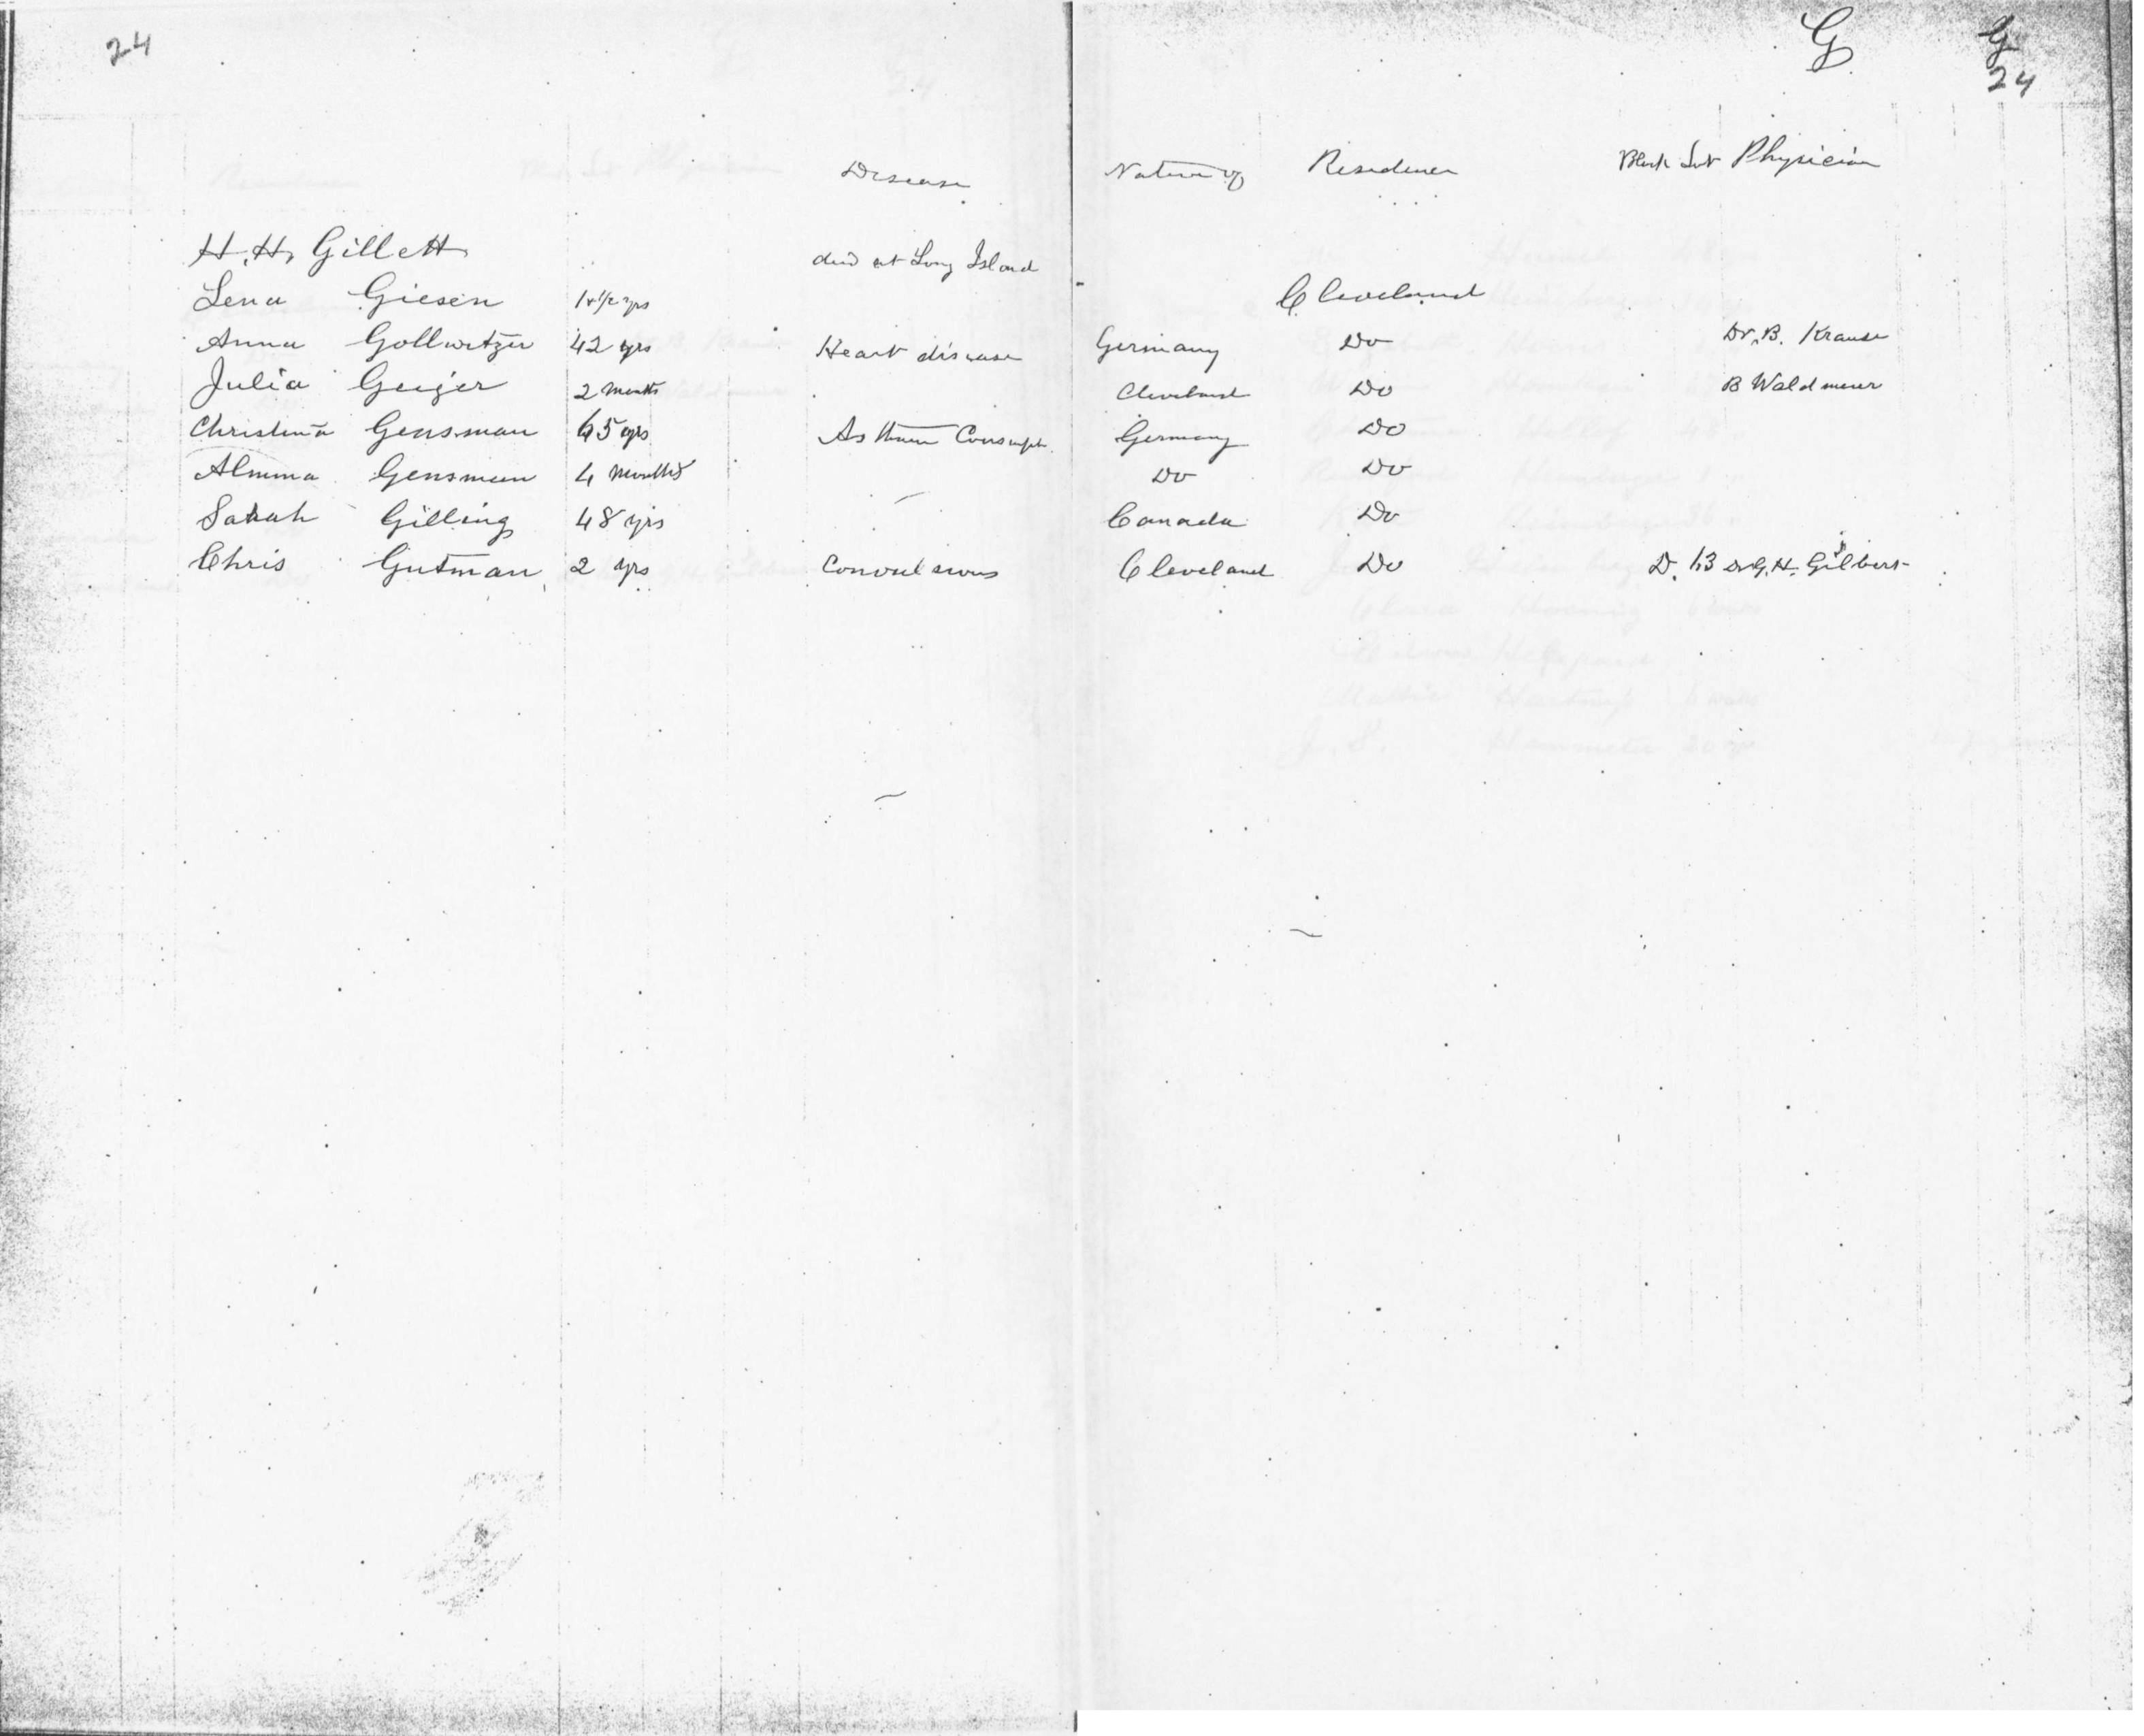 24 G G
24
Disease Native of Residence Block Lot Physician
H. H. Gillett died at Long Island
Lena Giesen 1 1/2 yrs Cleveland
Anna Gollwitzer 42 yrs Heart disease Germany Do Dr. B. Krause
Julia Geiger 2 months Cleveland Do B Waldmeier
Christina Gensman 65 yrs Asthma Consumpt. Germany Do
Almma Gensman 4 months Do Do
Sarah Gilling 48 yrs Canada Do
Chris Gutman 2 yrs Convulsions Cleveland Do D. 13 Dr G. H. Gilbert